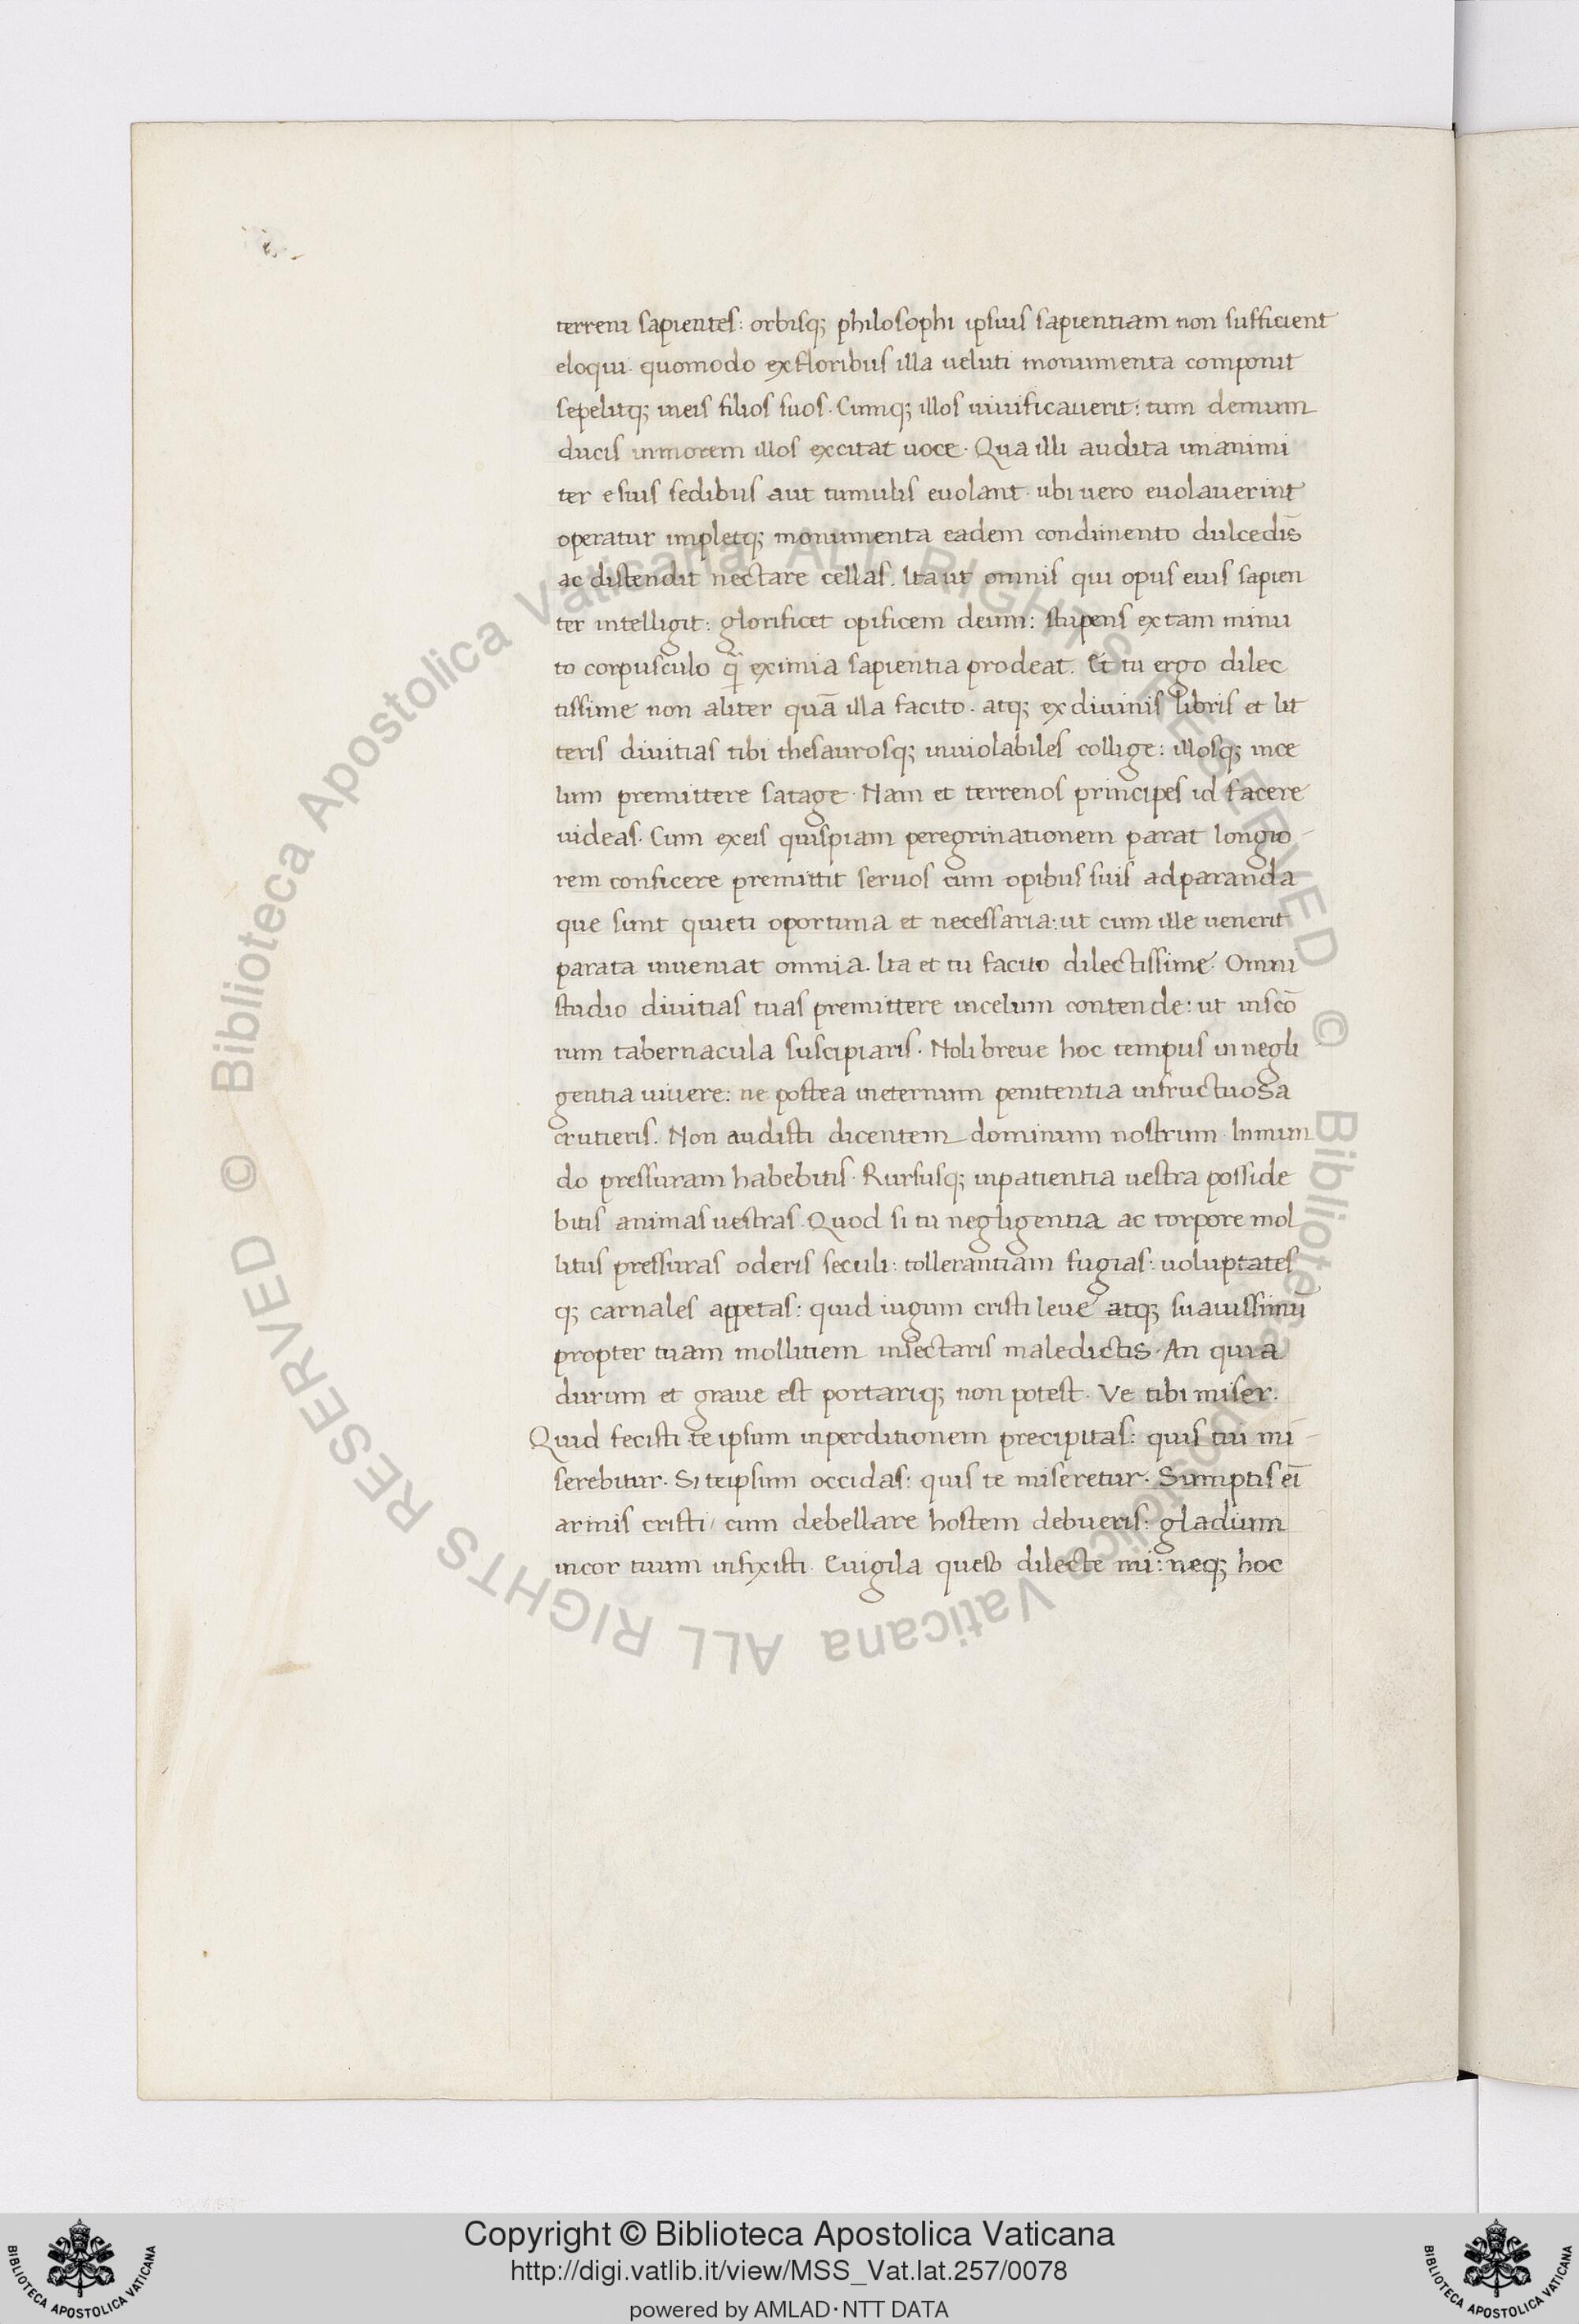 terreni sapientes: orbisq; philosophi ipsius sapientiam non sufficient
eloqui. quomodo ex floribus illa ueluti monumenta componit
sepelitq; in eis filios suos. Cumq; illos uiuificauerit: tum demum
ducis in morem illos excitat uoce. Qua illi audita unanimi
ter e suis sedibus aut tumulis euolant. ubi uero euolauerint
operatur impletq; monumenta eadem condimento dulcedīs
ac distendit nectare cellas. Ita ut omnis qui opus eius sapien
ter intelligit: glorificet opificem deum: stupens ex tam minu
to corpusculo q̄ eximia sapientia prodeat. Et tu ergo dilec
tissime non aliter quā illa facito. atq; ex diuinis libris et lit
teris diuitias tibi thesaurosq; inuiolabiles collige: illosq; in ce
lum premittere satage. Nam et terrenos principes id facere
uideas. Cum ex eis quispiam peregrinationem parat longio-
rem conficere premittit seruos cum opibus suis ad paranda
que sunt quieti oportuna et necessaria: ut cum ille uenerit
parata inueniat omnia. Ita et tu facito dilectissime. Omni
studio diuitias tuas premittere in celum contende: ut in scō
rum tabernacula suscipiaris. Noli breue hoc tempus in negli
gentia uiuere: ne postea in eternum penitentia infructuosa
crutieris. Non audisti dicentem dominum nostrum. In mun
do pressuram habebitis. Rursusq; in patientia uestra posside
bitis animas uestras. Quod si tu negligentia ac torpore mol
litus pressuras oderis seculi: tollerantiam fugias: uoluptates
q; carnales appetas: quid iugum cristi leue atq; suauissimū
propter tuam mollitiem insectaris maledictis. An quia
durum et graue est portariq; non potest. Ve tibi miser.
Quid fecisti te ipsum in perditionem precipitas: quis tui mi-
serebitur. Si te ipsum occidas: quis te miseretur. Sumptis eī
armis cristi/ cum debellare hostem debueris: gladium
in cor tuum infixisti. Euigila queso dilecte mi: neq; hoc
© Biblioteca Apostolica Vaticana ALL RIGHTS RESERVED © Biblioteca Apostolica Vaticana ALL RIGHTS RESERVED
Copyright © Biblioteca Apostolica Vaticana
http://digi.vatlib.it/view/MSS_Vat.lat.257/0078
powered by AMLAD·NTT DATA
BIBLIOTECA APOSTOLICA VATICANA
BIBLIOTECA APOSTOLICA VATICANA